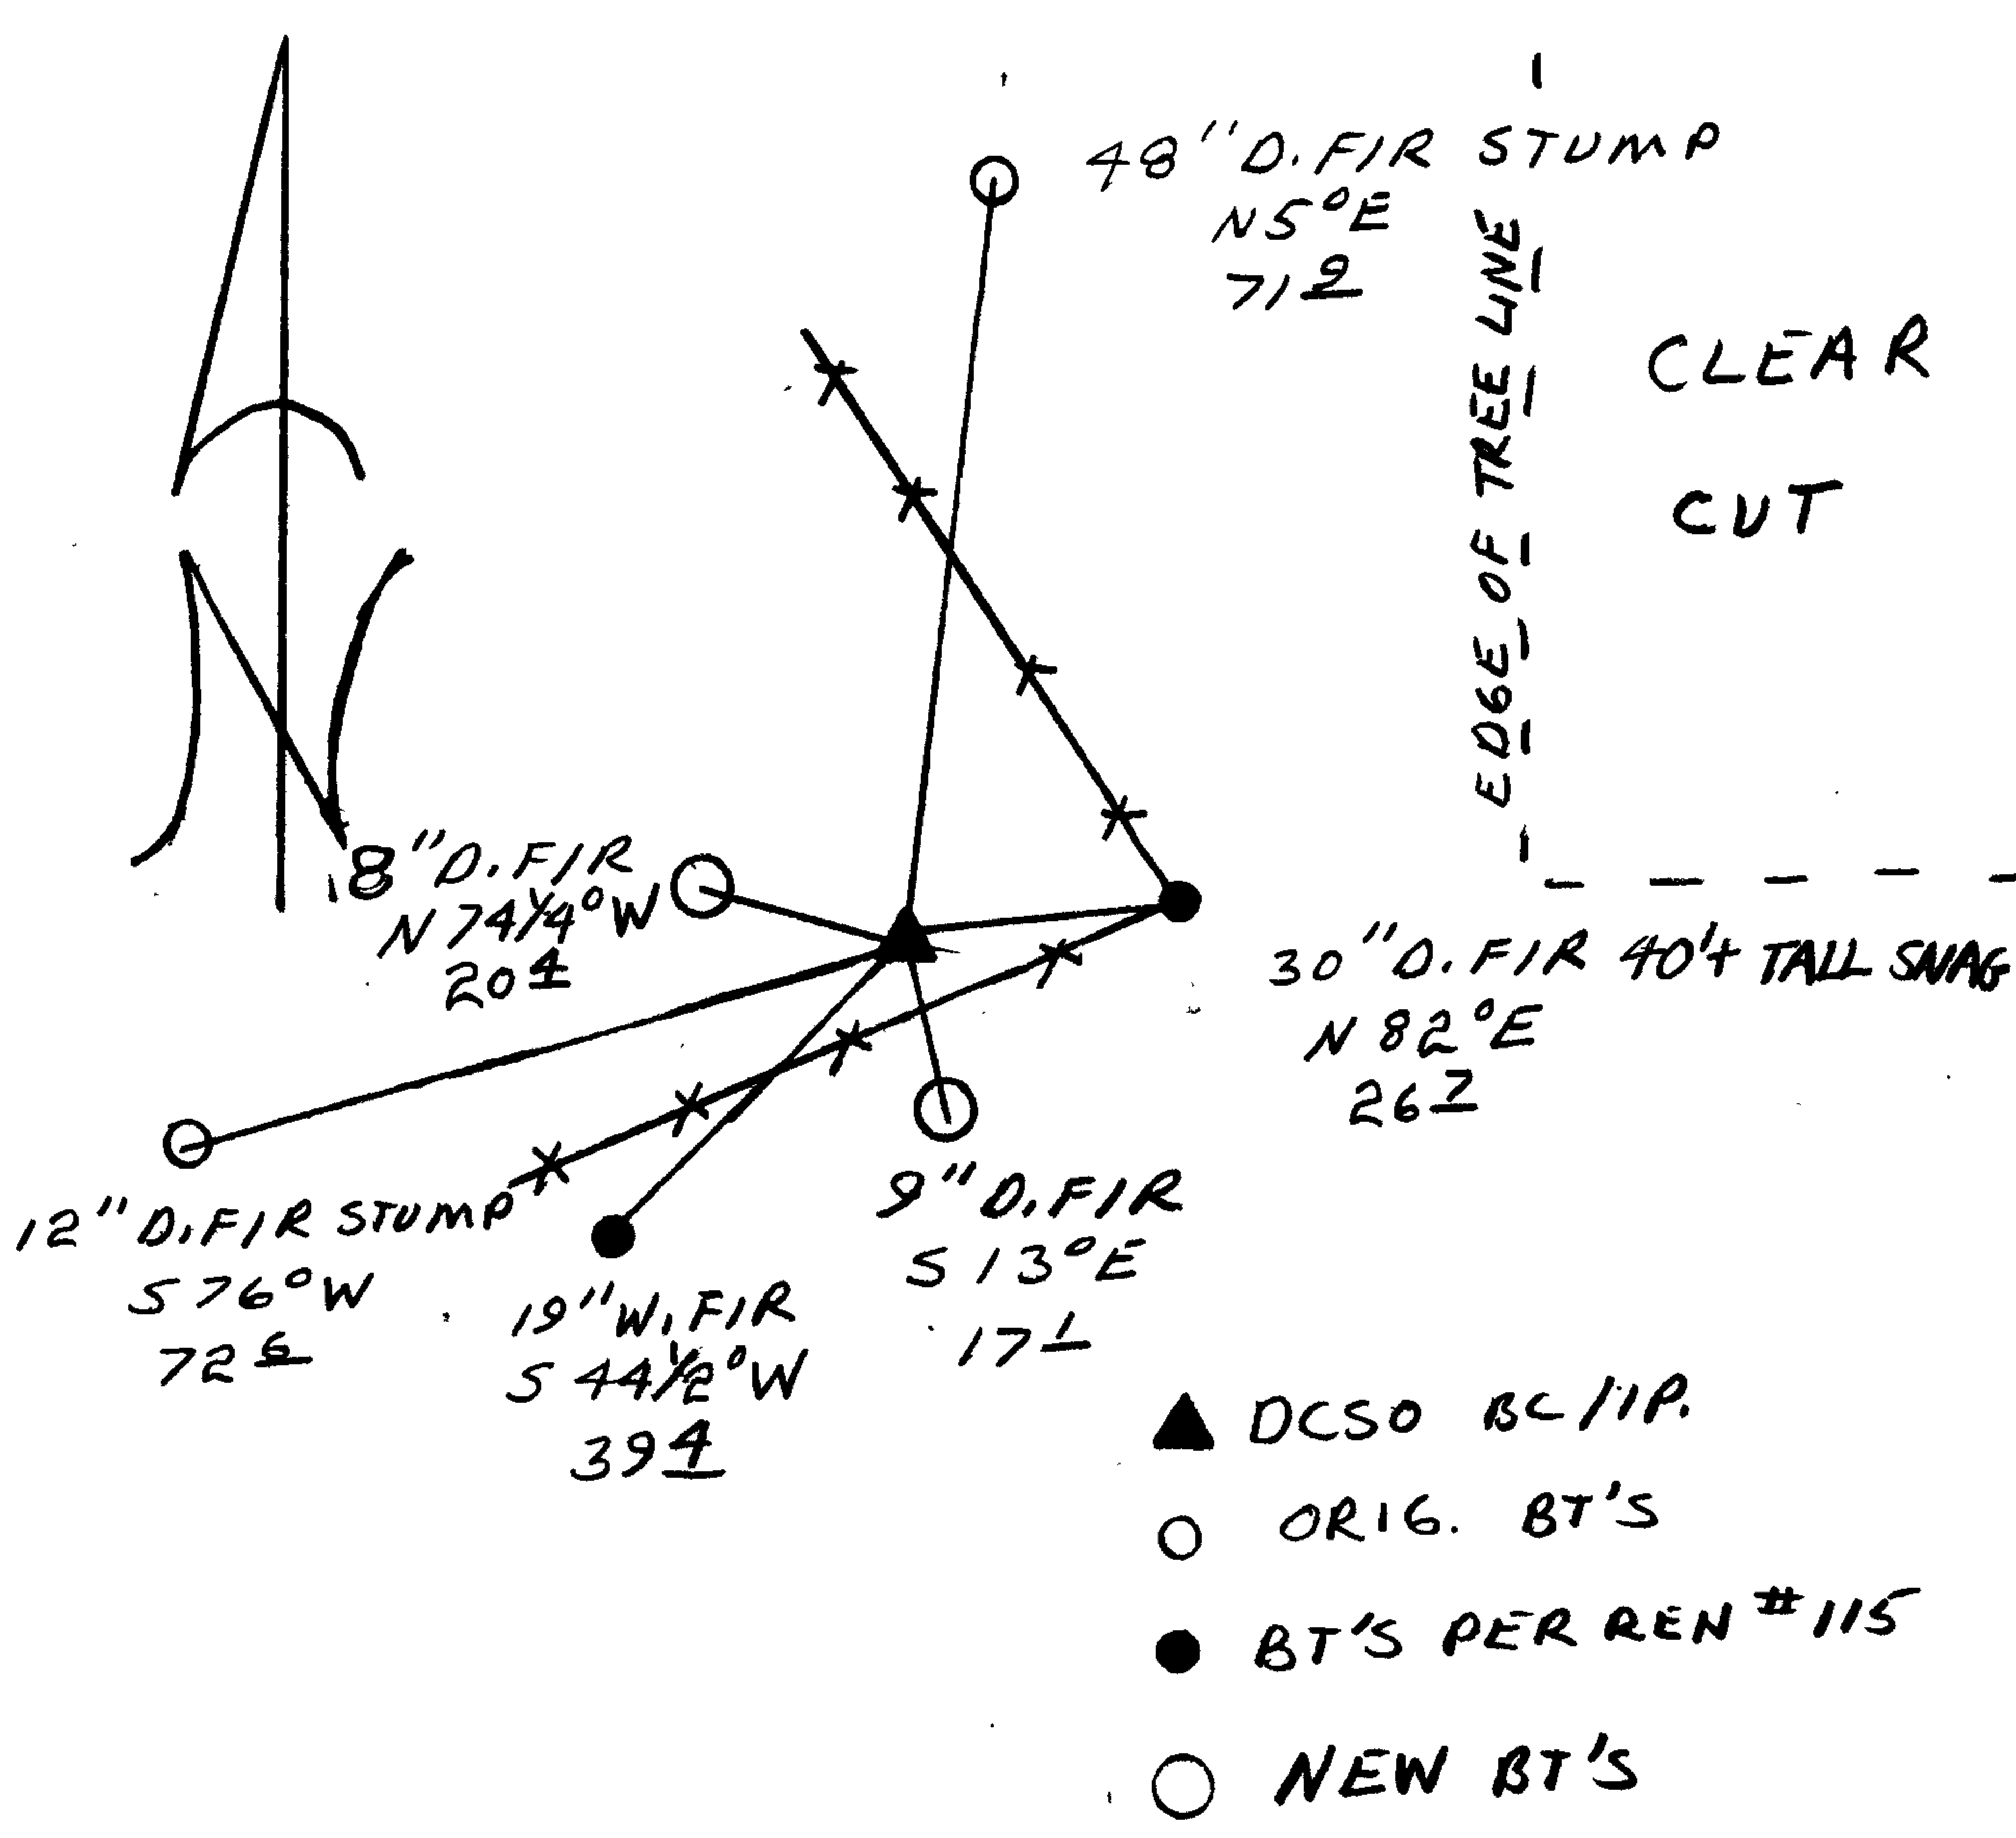 48" D. FIR STUMP
N 5° E
71 2
EDGE OF TREE LINE
CLEAR
CUT
N
18" D. FIR
N 74 1/4° W
20 4
30" D. FIR 40'± TALL SNAG
N 82° E
26 7
12" D. FIR STUMP
S 76° W
72 6
19" W. FIR
S 44 1/2° W
39 4
9" D. FIR
S 13° E
17 1
DCSO BC/IP.
ORIG. BT'S
BT'S PER REN #115
NEW BT'S